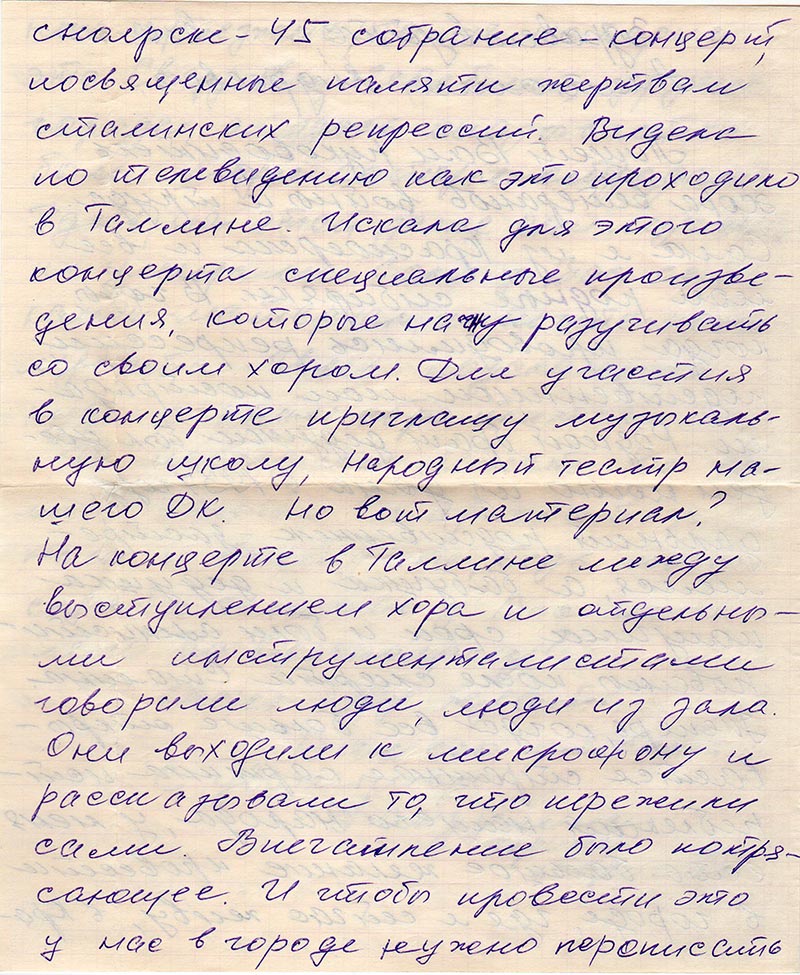 сноярске-45 собрание-концерт,
посвященные памяти жертвам
сталинских репрессий. Видела
по телевидению как это проходило
в Таллине. Искала для этого
концерта специальные произве-
дения, которые начну разучивать
со своим хором. Для участия
в концерте приглашу музыкаль-
ную школу, Народный театр на-
шего ДК. Но вот материал?
На концерте в Таллине между
выступлением хора и отдельны-
ми инструменталистами
говорили люди, люди из зала.
Они выходили к микрофону и
рассказывали то, что пережили
сами. Впечатление было потря-
сающее. И чтобы провести это
у нас в городе нужно переписать